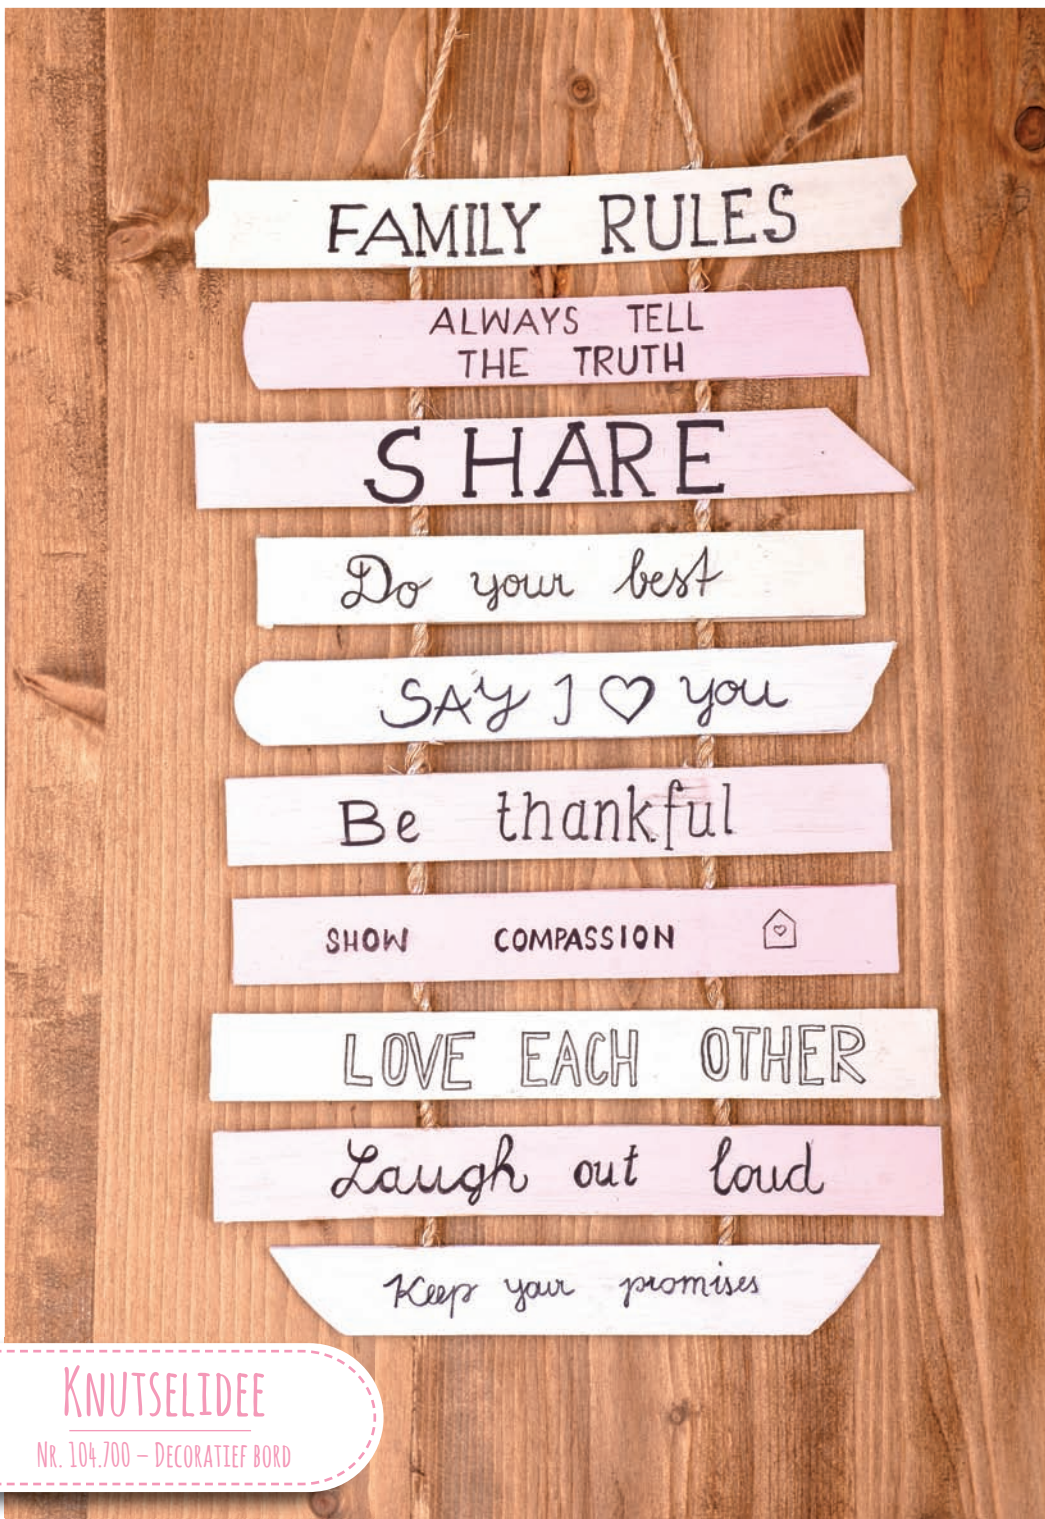 FAMILY RULES
ALWAYS TELL
THE TRUTH
SHARE
Do your best
SAY I ♡ you
Be thankful
SHOW COMPASSION
LOVE EACH OTHER
Laugh out loud
Keep your promises
KNUTSELIDEE
NR. 104.700 – DECORATIEF BORD